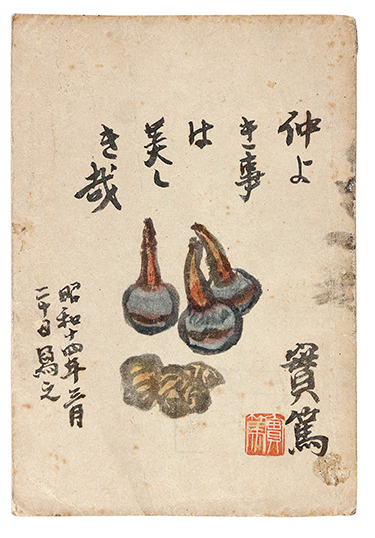 仲よ
き事
は
美し
き哉
實篤
實篤
昭和十四年三月
二十日寫之